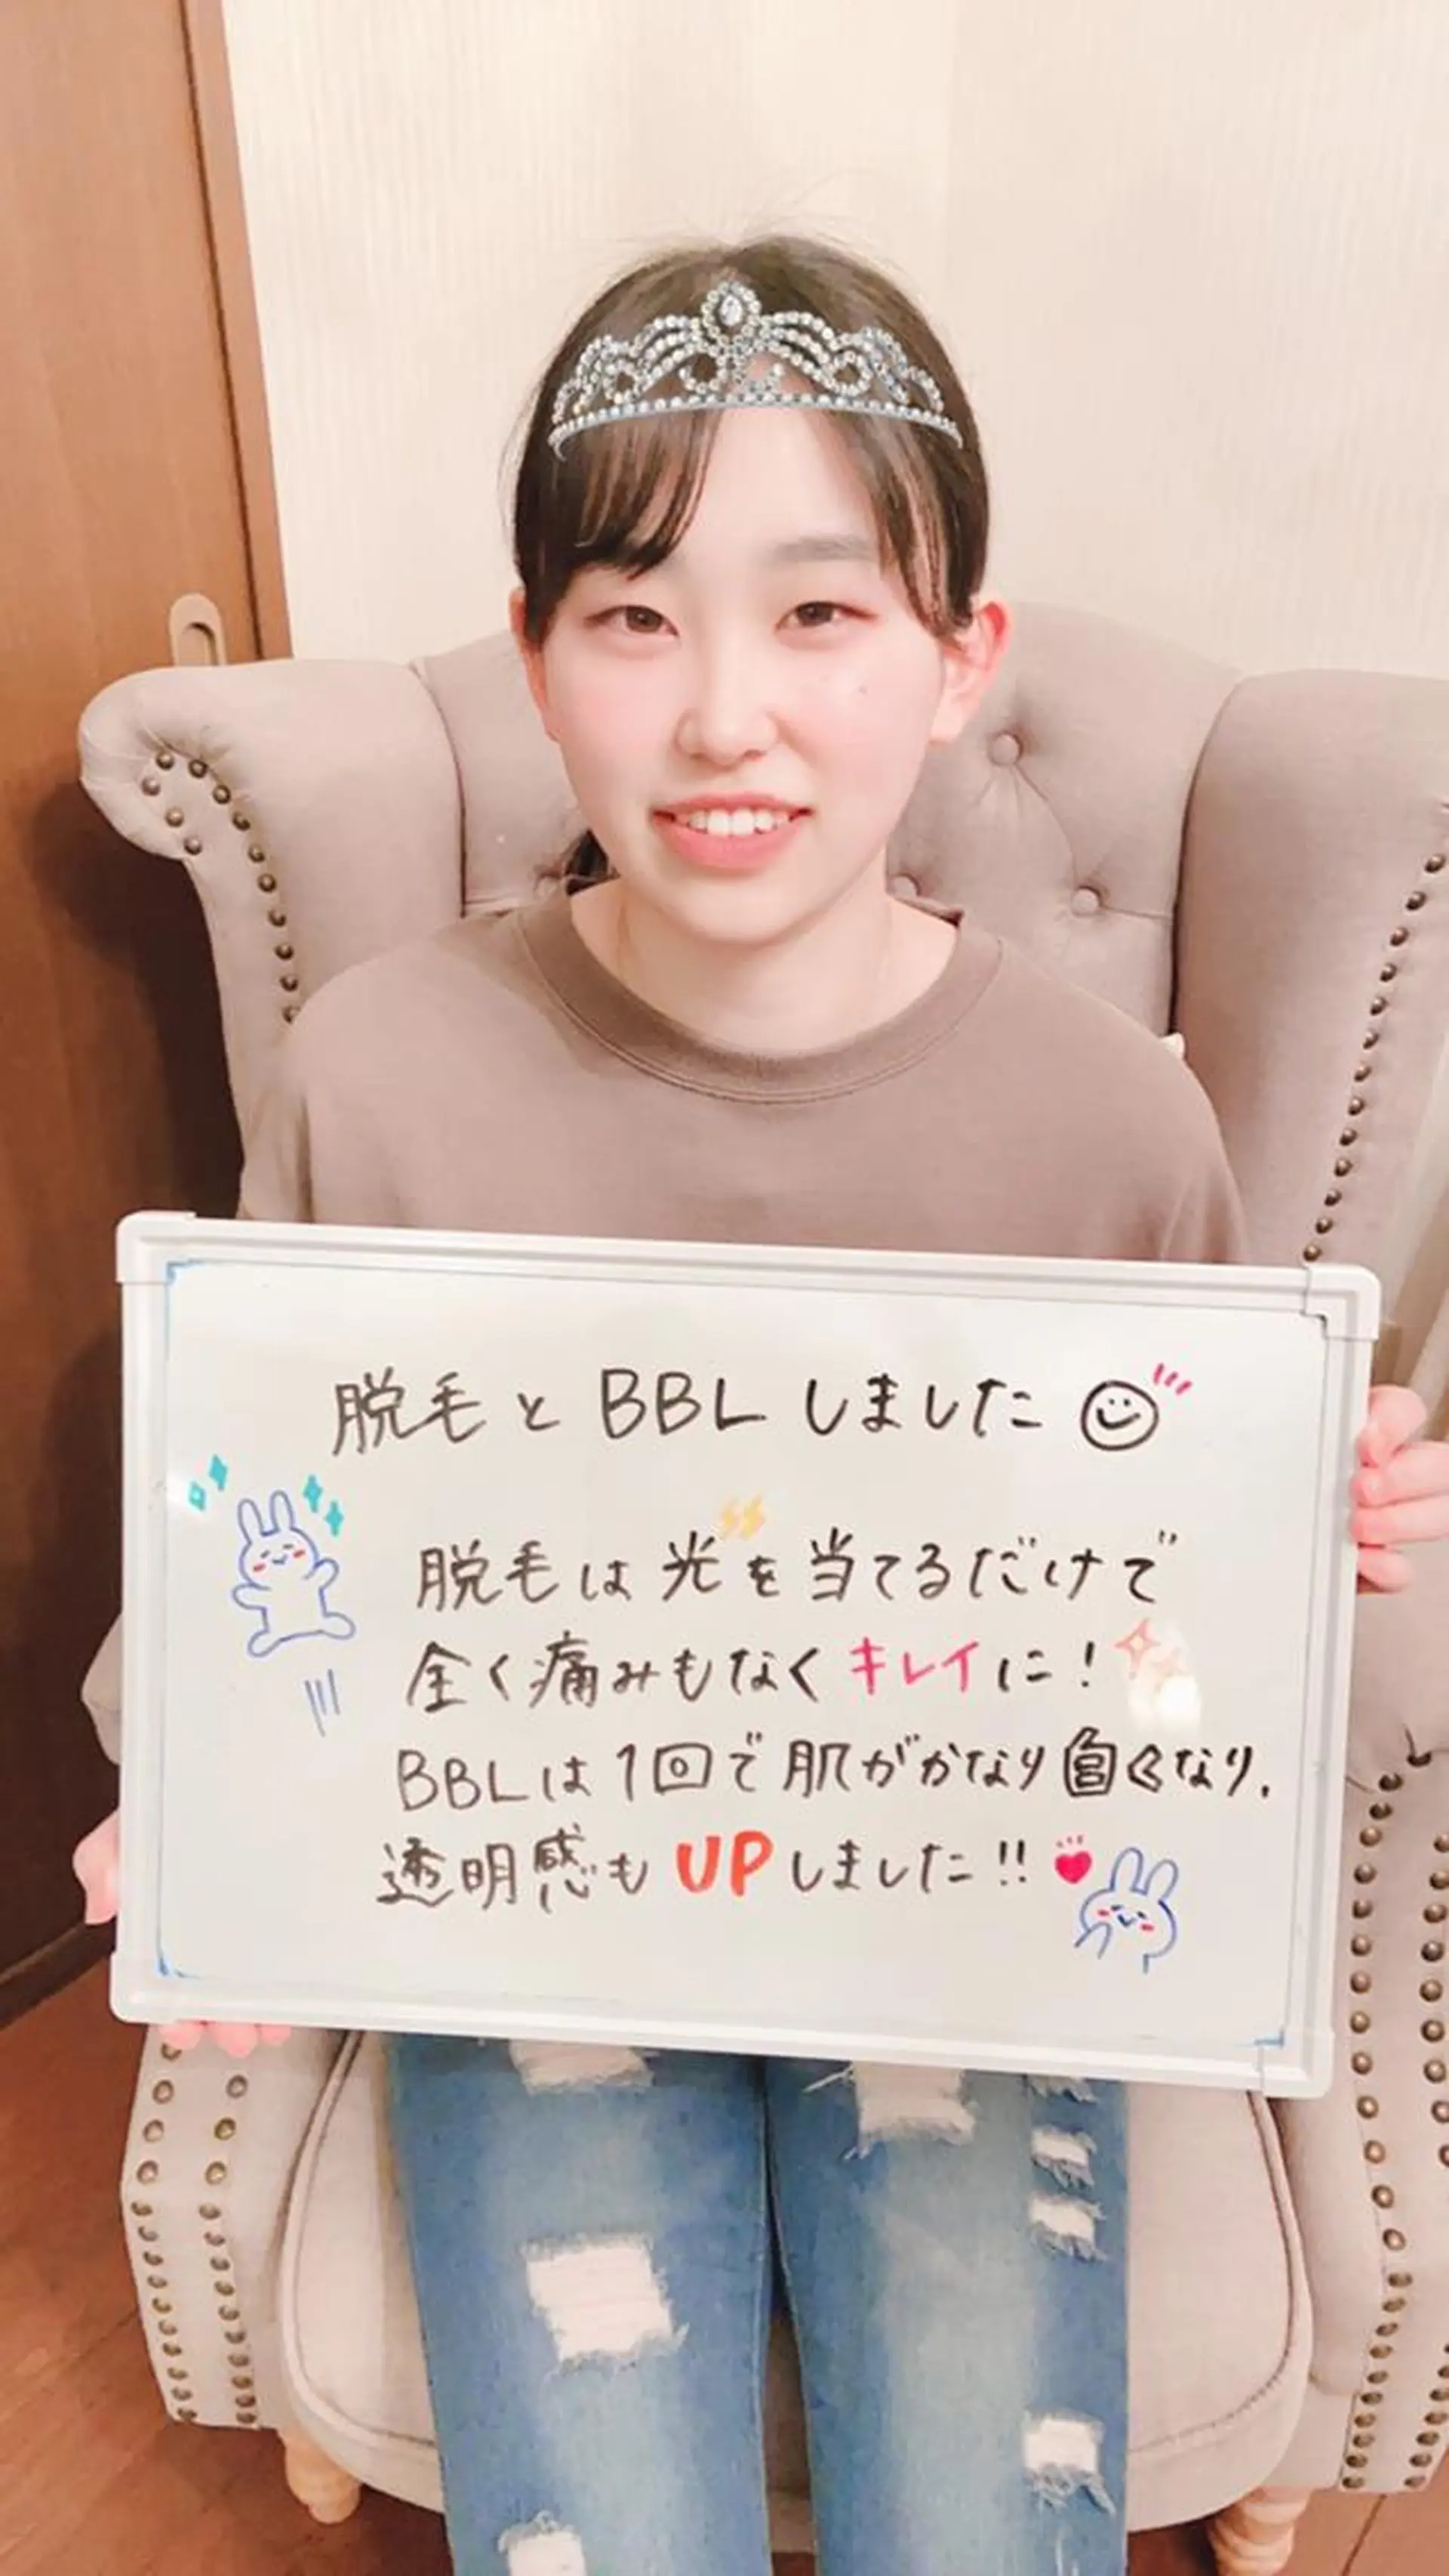 脱毛とBBLしました
脱毛は光を当てるだけで
全く痛みもなくキレイに！
BBLは1回で肌がかなり白くなり、
透明感もUPしました!!